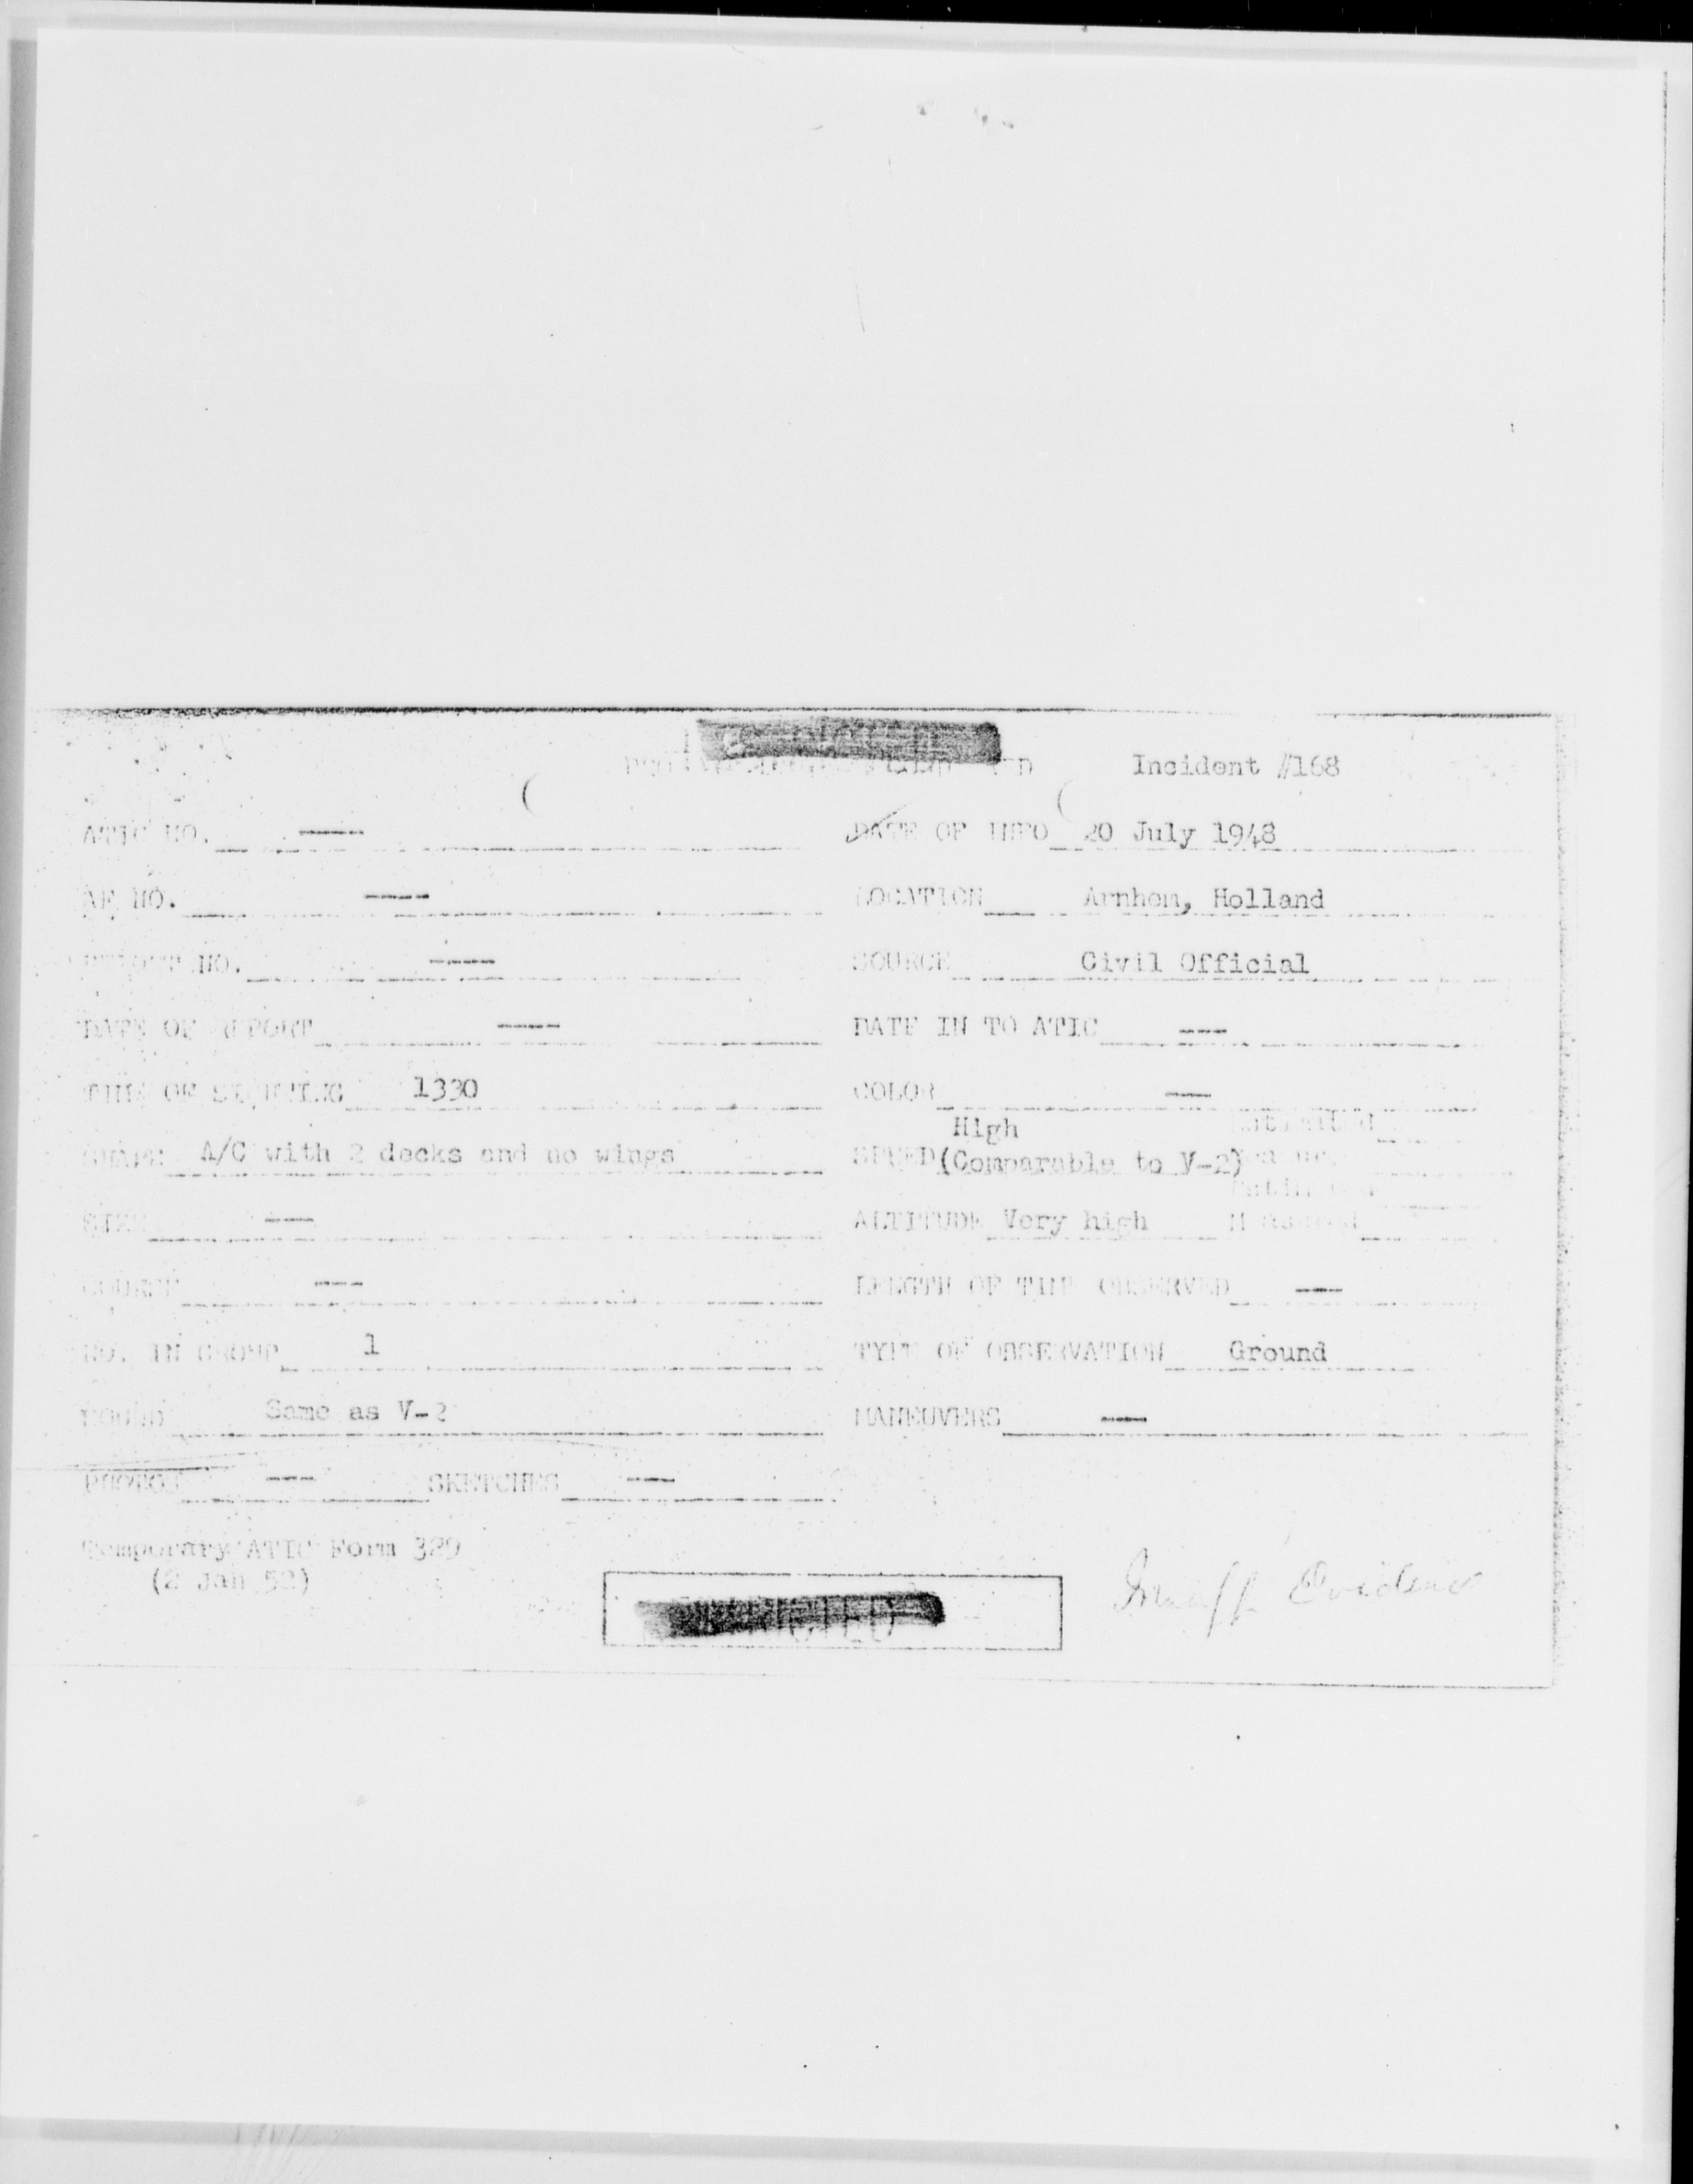 Incident #168
ATIC NO. ---- DATE OF INFO 20 July 1948
AF NO. ---- LOCATION Arnhem, Holland
REPORT NO. ---- SOURCE Civil Official
DATE OF REPORT ---- DATE IN TO ATIC ---
TIME OF SIGHTING 1330 COLOR ---
High
SHAPE A/C with 2 decks and no wings SPEED (Comparable to V-2)
SIZE --- ALTITUDE Very high
COURSE --- LENGTH OF TIME OBSERVED ---
NO. IN GROUP 1 TYPE OF OBSERVATION Ground
SOUND Same as V-2 MANEUVERS ---
PHOTOS --- SKETCHES ---
Temporary ATIC Form 329
(2 Jan 52)
Insuff Evidence